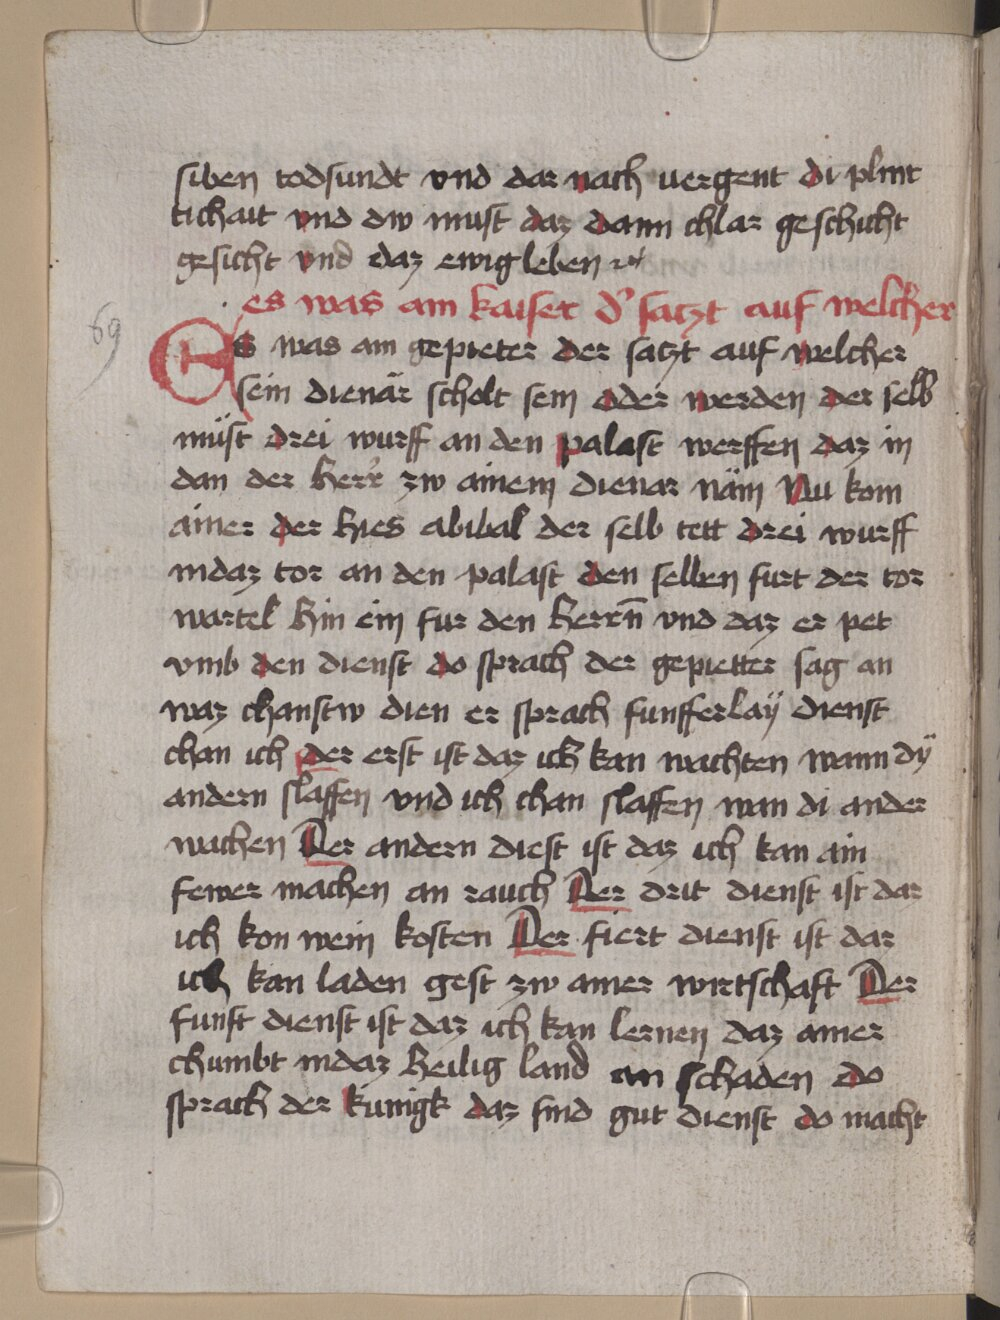 siben todsundt vnd dar nach uergent di plint
tichait vnd dw must daz dann chlar geschicht
gesicht vnd daz ewig leben etc
es was ain kaiser d' satzt auf welcher
69
Es was ain gepieter der satzt auf welcher
sein dienär scholt sein oder werden der selb
müst drei wurff an den palast werffen daz in
dan der herr zw ainem dienar näm Nu kom
ainer der hies abibal der selb tett drei wurff
indaz tor an den palast den selben furt der tor
wartel hin ein fur den herrn̄ vnd daz er pet
vmb den dienst do sprach der gepietter sag an
waz chanstw dien er sprach funfferlaÿ dienst
chan ich der erst ist daz ich kan wachten wann dÿ
andern slaffen vnd ich chan slaffen wan di ander
wachen Der andern diest ist daz ich kan ain
fewer machen an rauch Der drit dienst ist daz
ich kon wein kosten Der fiert dienst ist daz
ich kan laden gest zw ainer wirtschaft Der
funft dienst ist daz ich kan lernen daz ainer
chumbt indaz heilig land an schaden do
sprach der kunigk daz sind gut dienst do macht